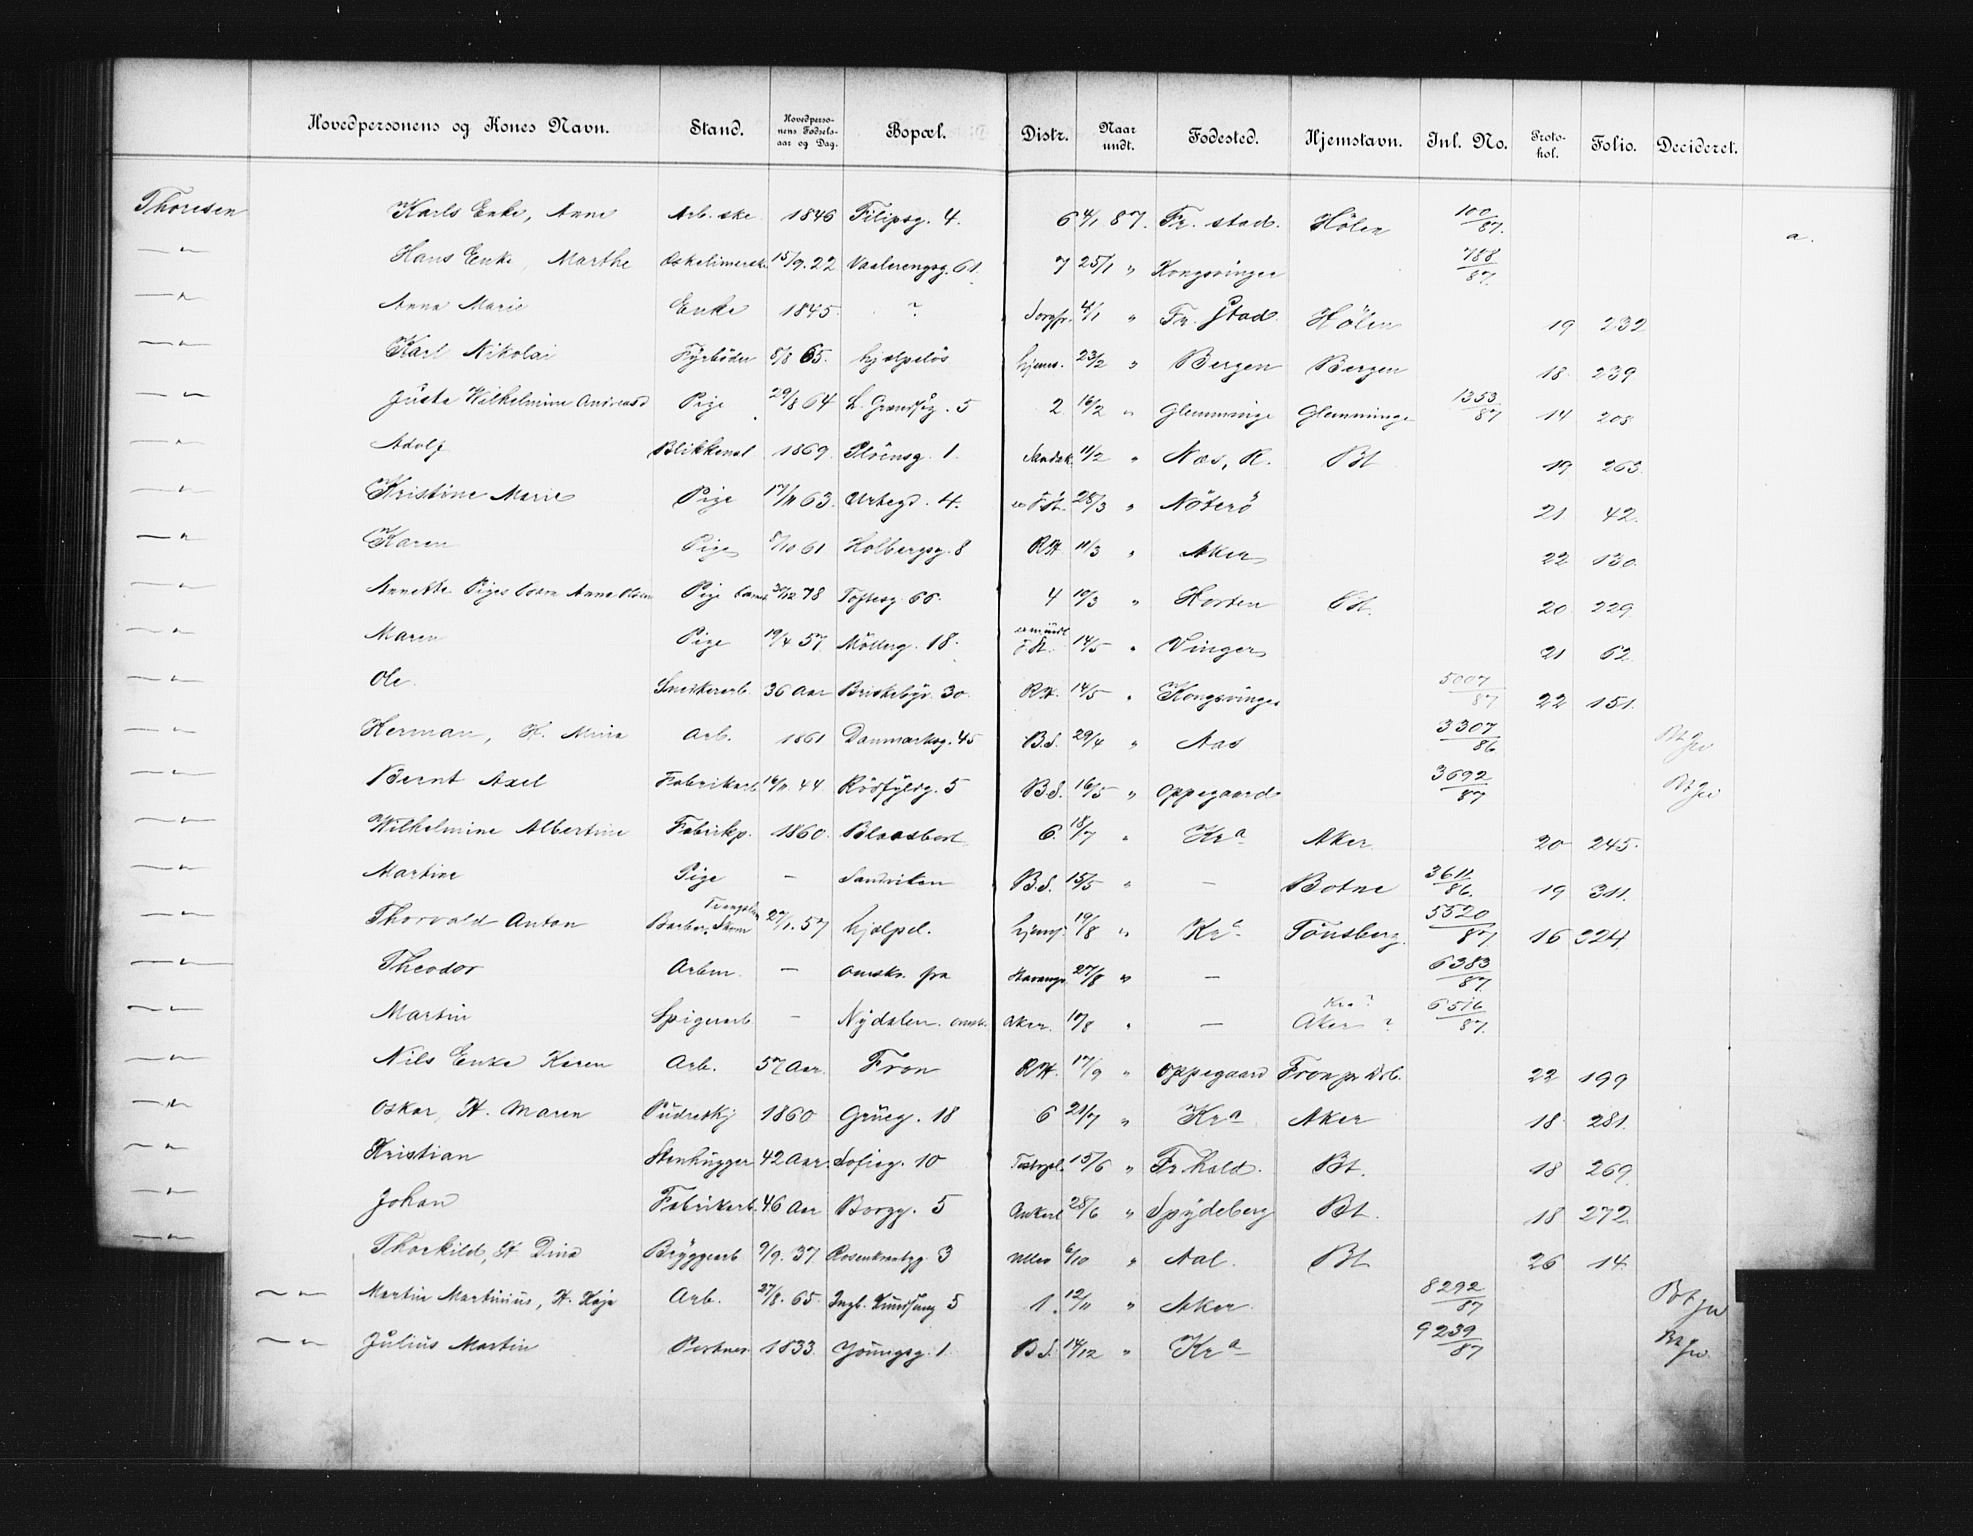 Hovedpersonens og Kones Navn. Stand. Hovedperso-nens Fødsels-aar og Dag. Bopæl. Distr. Naar undt. Fødested. Hjemstavn. Inl. No. Proto-kol. Folio. Decideret.
Thoresen Karls Enke, Anne Arb.ske 1846 Filipsg. 4. 6 4/1 87. Fr. stad. Hölen 100/87. a.
—"— Hans Enke, Marthe 15/9.22 Vaalerengsg. 61. 7 25/1 " Kongsvinger 788/87.
—"— Anna Marie Enke 1845. ? 4/1 " Fr. Stad. Hölen 19 232
—"— Karl Nikolai Fyrböder 8/8 65. hjælpelös hjems. 23/2 " Bergen Bergen 18. 239
—"— Juste Wilhelmine Andreasd Pige 29/8 64 L. Grændseg. 5 2 16/2 " Glemminge Glemminge 1353/87 14 208
—"— Adolf Blikkensl 1869. Plöensg. 1. Sandvk. 11/2 " Næs, R. Bt 19 263.
—"— Kristine Marie Pige 17/11 63. Urtegd. 4. F.St. 28/3 " Nöterö 21 42.
—"— Karen Pige 8/10 61 Holbergsg. 8 RH. 11/3 " Aker 22 130.
—"— Annette Piges barn Anna Olsen Pige 30/12 78 Toftesg. 66. 4 10/3 " Horten St. 20 229.
—"— Maren Pige 19/4 57 Möllerg. 18. F.St. 14/5 " Vinger 21 62
—"— Ole. Snekkerarb. 36 Aar Briskebyv. 30. RH. 14/5 " Kongsvinger 5007/87 22 151.
—"— Herman, H. Mina Arb. 1861 Danmarksg. 45 B.S. 29/4 " Aas 3307/86
—"— Bernt Axel Fabrikarb 16/11 44 Rödfyldg. 5 B.S. 16/5 " Oppegaard 3692/87
—"— Wilhelmine Albertine Fabrikp. 1860. 6. 18/7 " Kra Aker 20 245.
—"— Martine Pige — Sandviken B.S. 15/5 " — Botne 3611/86. 19 311.
—"— Thorvald Anton Barber, 27/1. 57 hjælpel. hjems. 19/8 " Kra Tönsberg. 5520/87. 16 324.
—"— Theodor Arbm. — omskr. fra Stavanger 27/8 " — 6383/87.
—"— Martin Spigerarb — Nydalen. Aker. 19/8 " — Kra? Aker? 6516/87.
—"— Nils Enke Karen Arb. 57 Aar. Fron RH. 17/9 " Oppegaard Fron pr Drb. 22 199
—"— Oskar, H. Maren 1860 Grueg. 18 6 21/7 " Kra Aker 18. 281.
—"— Kristian Stenhugger 42 Aar. Sofieg. 10 15/6 " Fr.hald. Bt. 18 269.
—"— Johan Fabrikarb. 46 Aar Borgg. 5 Ankerl 28/6 " Spydeberg Bt. 18 272.
—"— Thorkild, H Dina Bryggearb 9/9. 37. Rosenkrantzg. 3 6/10 " Aal. Bt 26 14.
—"— Martin Martinius, H. Kaja Arb. 27/8. 65. 5 1. 12/11 " Aker. 8292/87
—"— Julius Martin Portner 1833. Youngsg. 1. B.S. 14/12 " Kra 9239/87